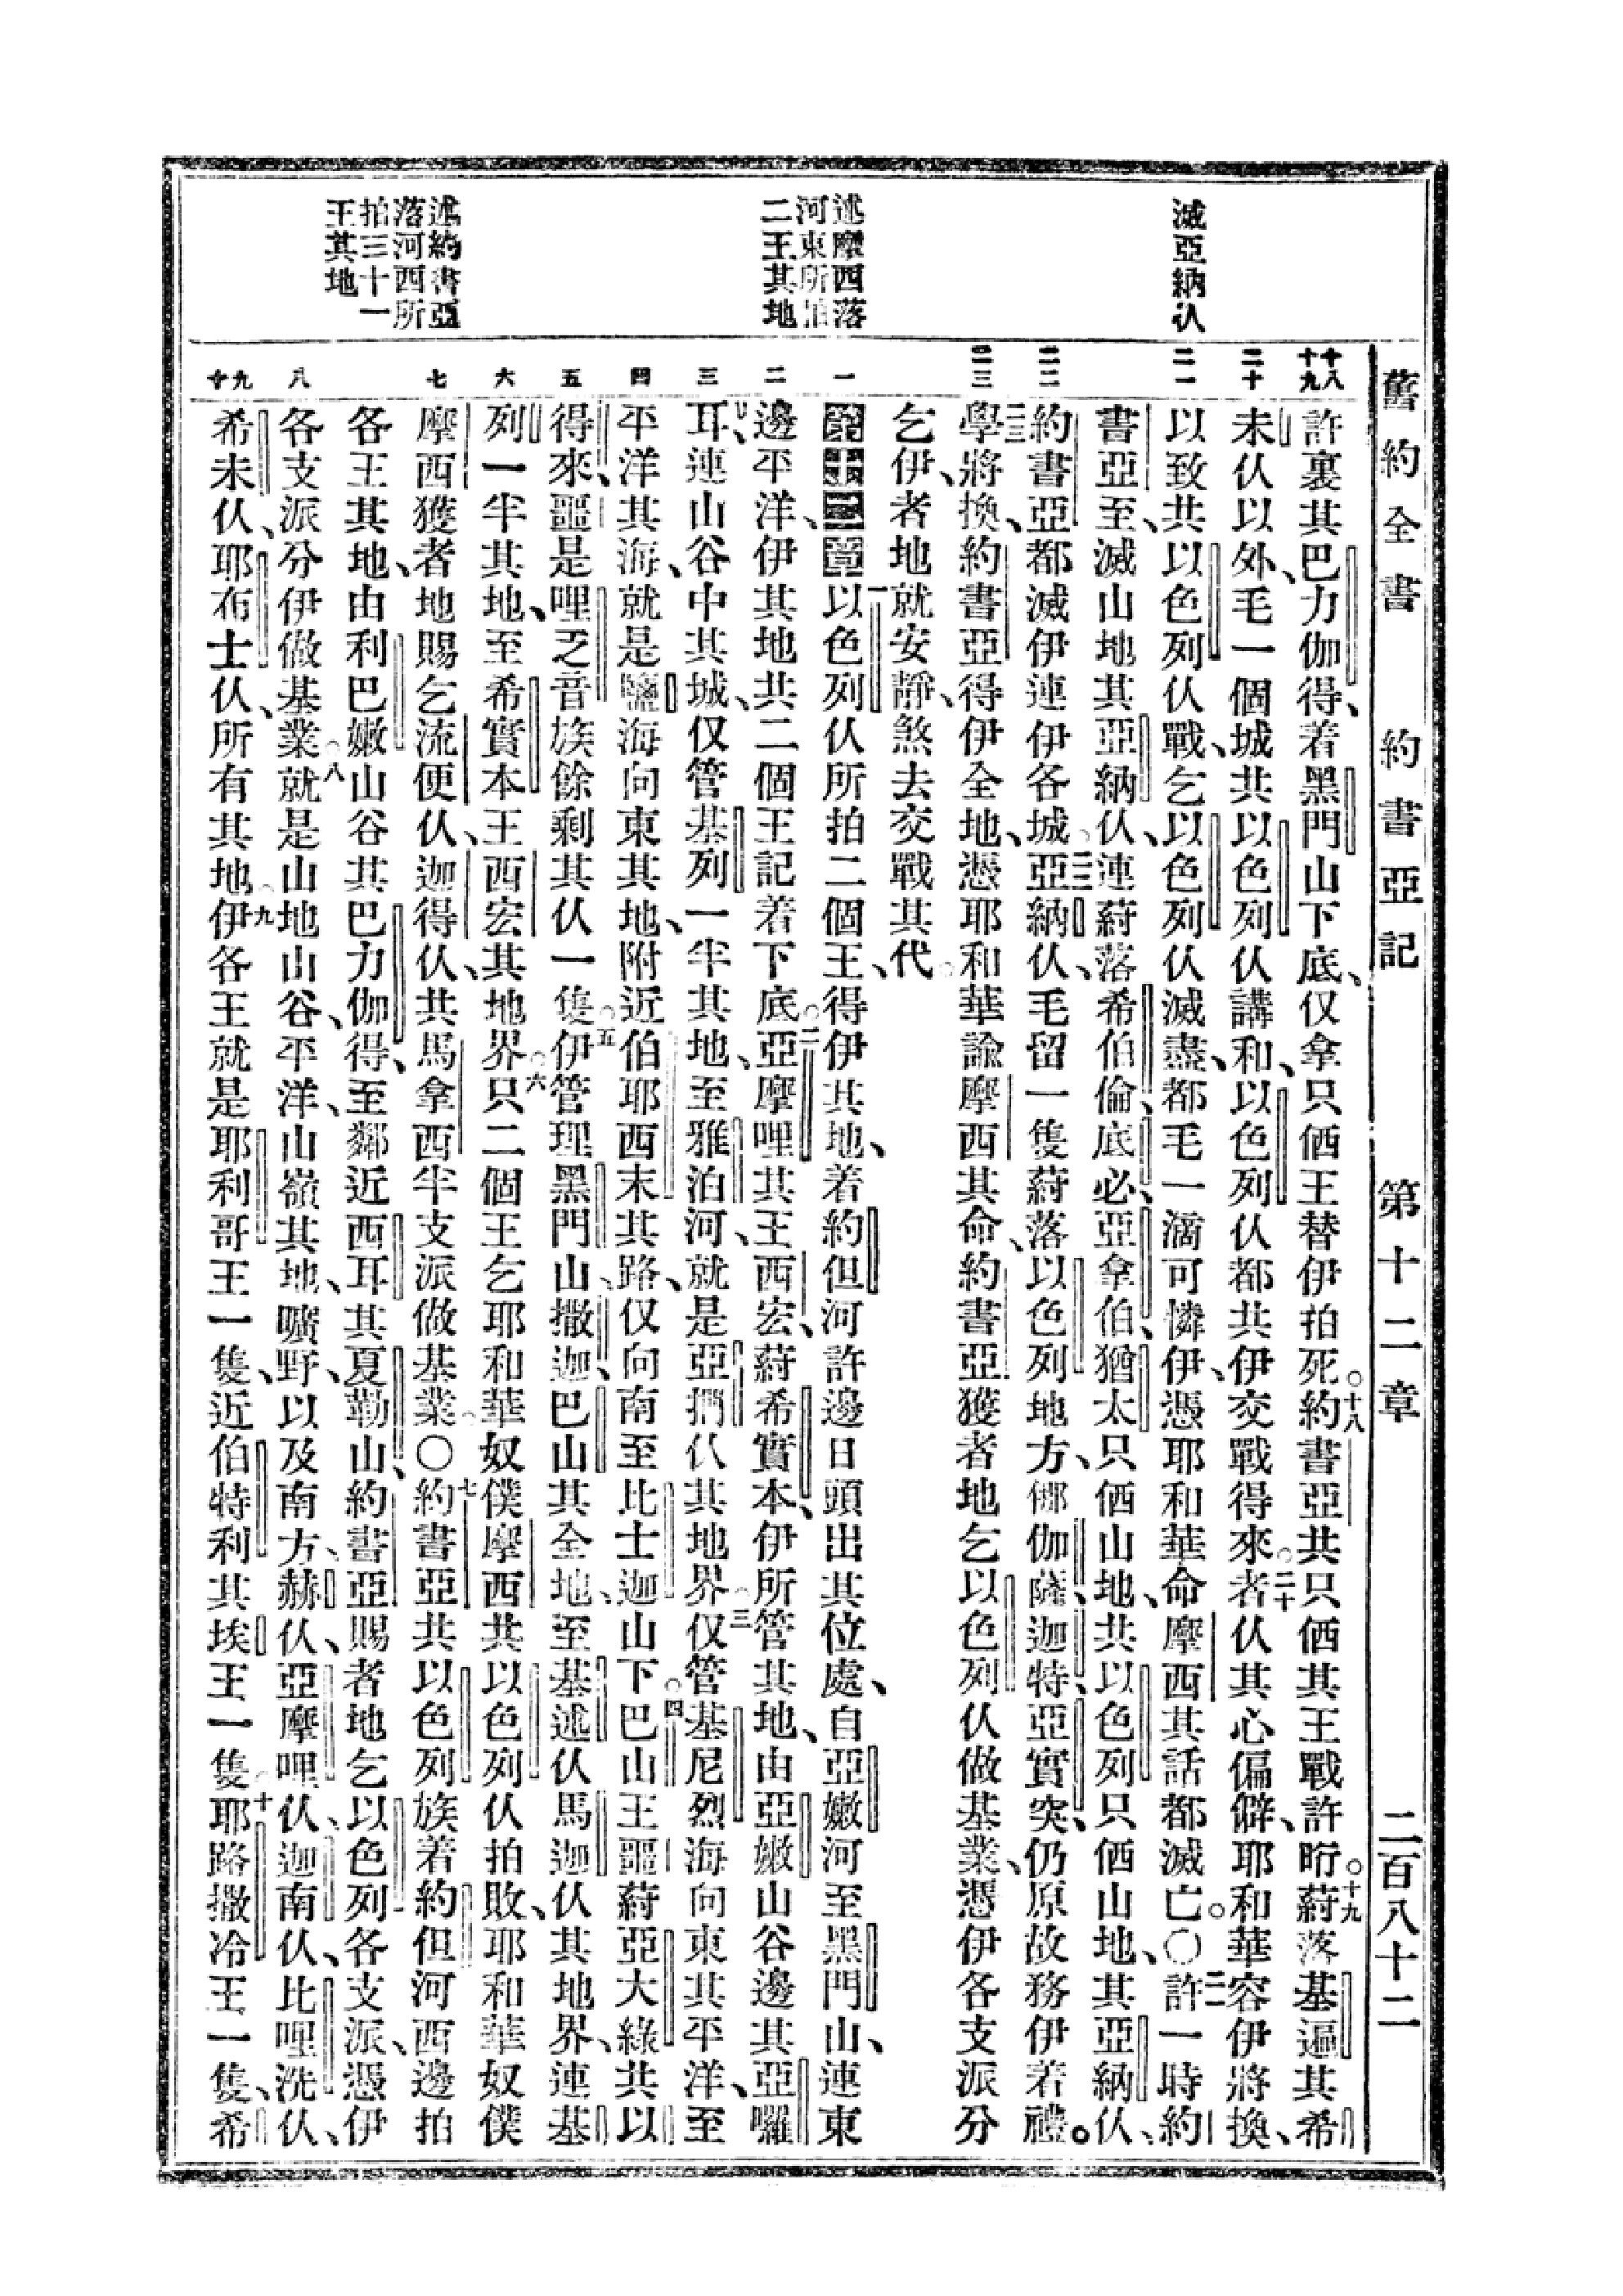 舊約全書 約書亞記 第十二章 二百八十二
滅亞納仫
述摩西落
河東所拍
二王其地
述約書亞
落河西所
拍三十一
王其地
十八 十九 二十 二一 二二 二三 一 二 三 四 五 六 七 八 九 十
許裏其巴力伽得、着黑門山下底、仅拿只俖王替伊拍死。十八約書亞共只俖其王戰許𣍐。十九蔚落基遍其希
未仫以外、毛一個城共以色列仫講和、以色列仫都共伊交戰得來。二十者仫其心偏僻、耶和華容伊將換、
以致共以色列仫戰、乞以色列仫滅盡、都毛一滴可憐伊、憑耶和華命摩西其話都滅亡。〇二一許一時約
書亞至、滅山地其亞納仫、連蔚落希伯倫、底必、亞拿伯、猶太只俖山地、共以色列只俖山地、其亞納仫、
約書亞都滅伊連伊各城。二二亞納仫、毛留一隻蔚落以色列地方、㑚伽薩、迦特、亞實突、仍原故務伊着禮。
二三學將換、約書亞得伊全地、憑耶和華諭摩西其命、約書亞獲者地乞以色列仫做基業、憑伊各支派分
乞伊、者地就安靜、煞去交戰其代。
第十二章 一以色列仫所拍二個王、得伊其地、着約但河許邊日頭出其位處、自亞嫩河至黑門山、連東
邊平洋、伊其地共二個王記着下底。二亞摩哩其王西宏、蔚希實本、伊所管其地、由亞嫩山谷邊其亞囉
耳、連山谷中其城、仅管基列一半其地、至雅泊河、就是亞捫仫其地界。三仅管基尼烈海向東其平洋、至
平洋其海、就是鹽海向東其地、附近伯耶西末其路、仅向南至比士迦山下。四巴山王噩蔚亞大綠共以
得來、噩是哩乏音族餘剩其仫一隻。五伊管理黑門山、撒迦、巴山其全地、至基述仫馬迦仫其地界、連基
列一半其地、至希實本王西宏其地界。六只二個王乞耶和華奴僕摩西共以色列仫拍敗、耶和華奴僕
摩西獲者地賜乞流便仫、迦得仫、共馬拿西半支派做基業。〇七約書亞共以色列族着約但河西邊拍
各王其地、由利巴嫩山谷其巴力伽得、至鄰近西耳其夏勒山、約書亞賜者地乞以色列各支派、憑伊
各支派分伊做基業。八就是山地山谷、平洋、山嶺其地、曠野、以及南方、赫仫、亞摩哩仫、迦南仫、比哩洗仫、
希未仫、耶布士仫、所有其地。九伊各王就是耶利哥王一隻、近伯特利其埃王一隻。十耶路撒冷王一隻、希